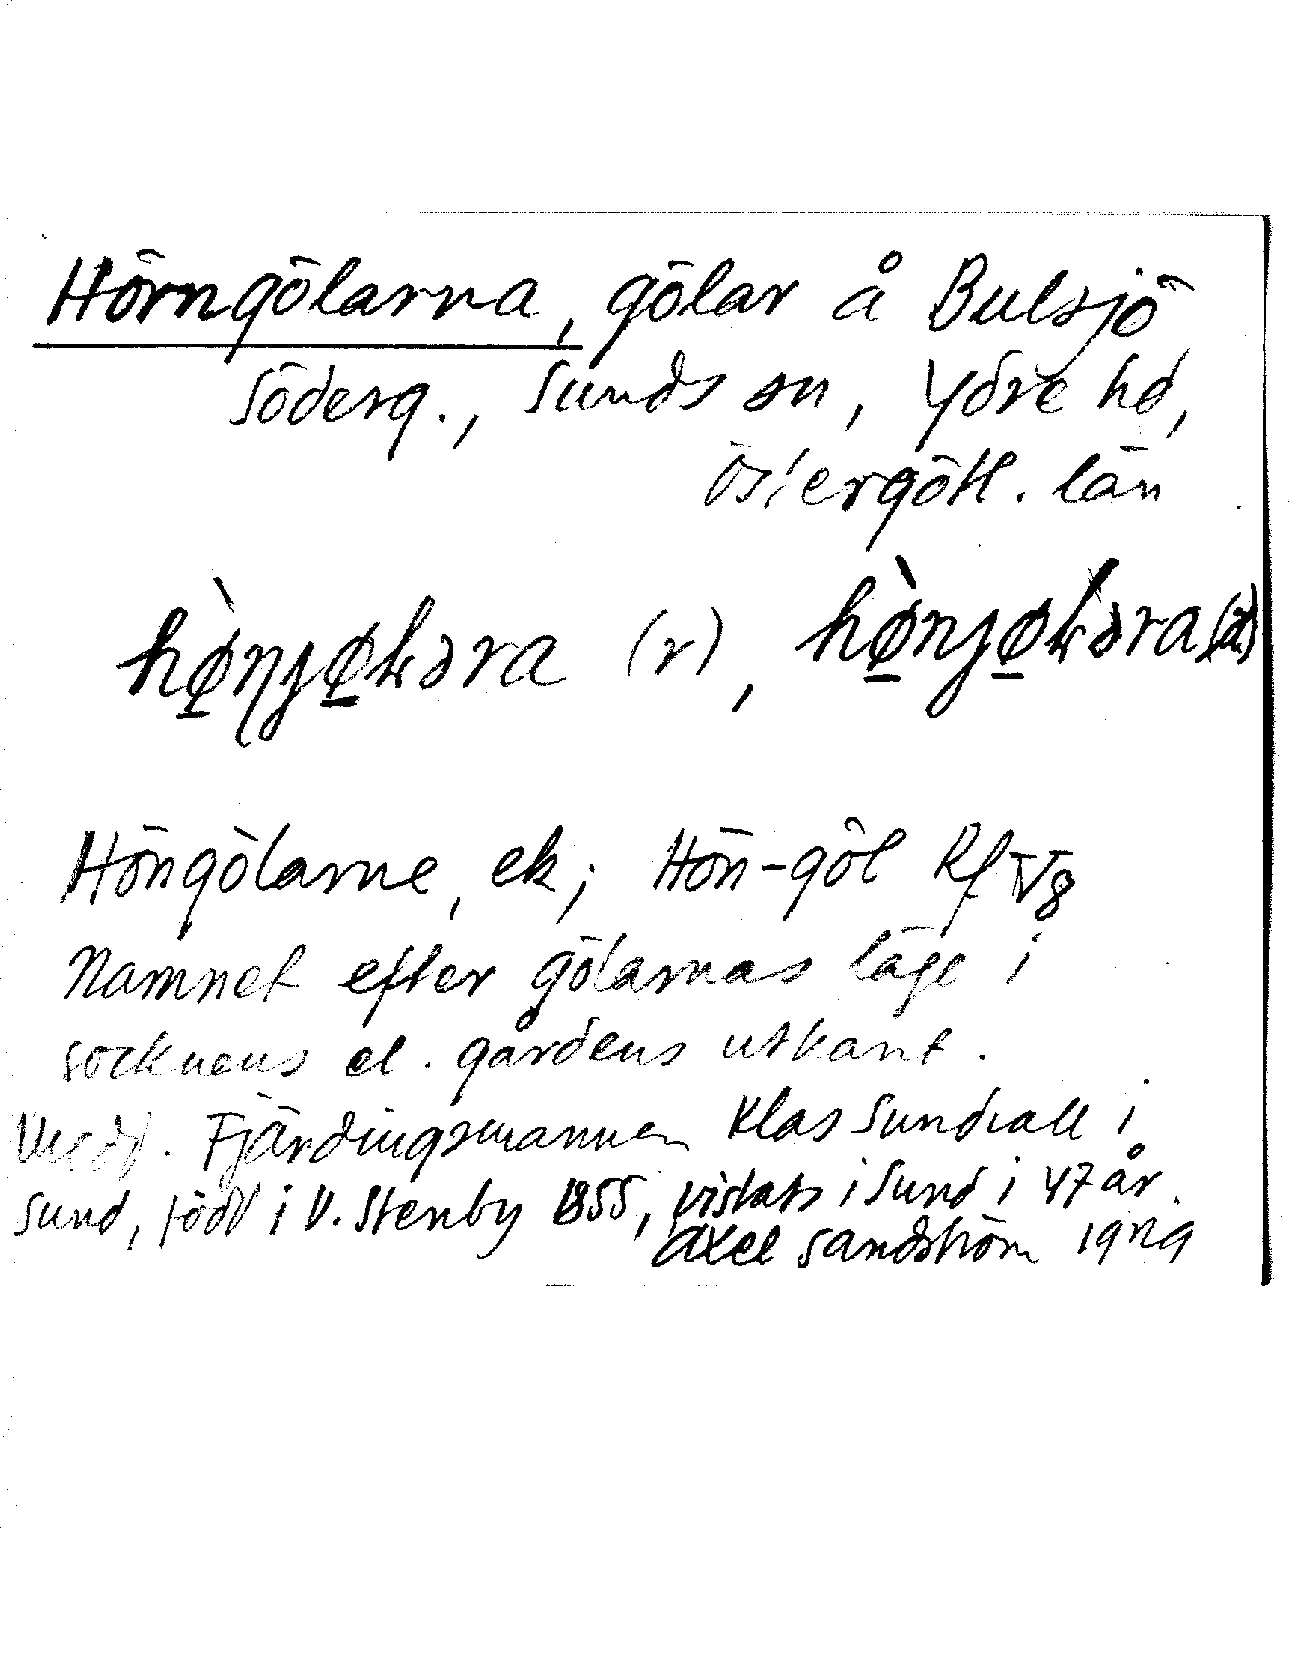 Hörngölarna, gölar å Bulsjö
Söderg., Sunds sn, Ydre hd,
Östergötl. län
hø̀njøɫəra (r), hø̀njøɫəra
Höngölarne, ek; Hön-göl Rf V8
Namnet efter gölarnas läge i
socknens el. gårdens utkant.
Medd. Fjärdingsmannen Klas Sundvall i
Sund, född i V. Stenby 1855, vistats i Sund i 47 år.
Axel Sandström 1929